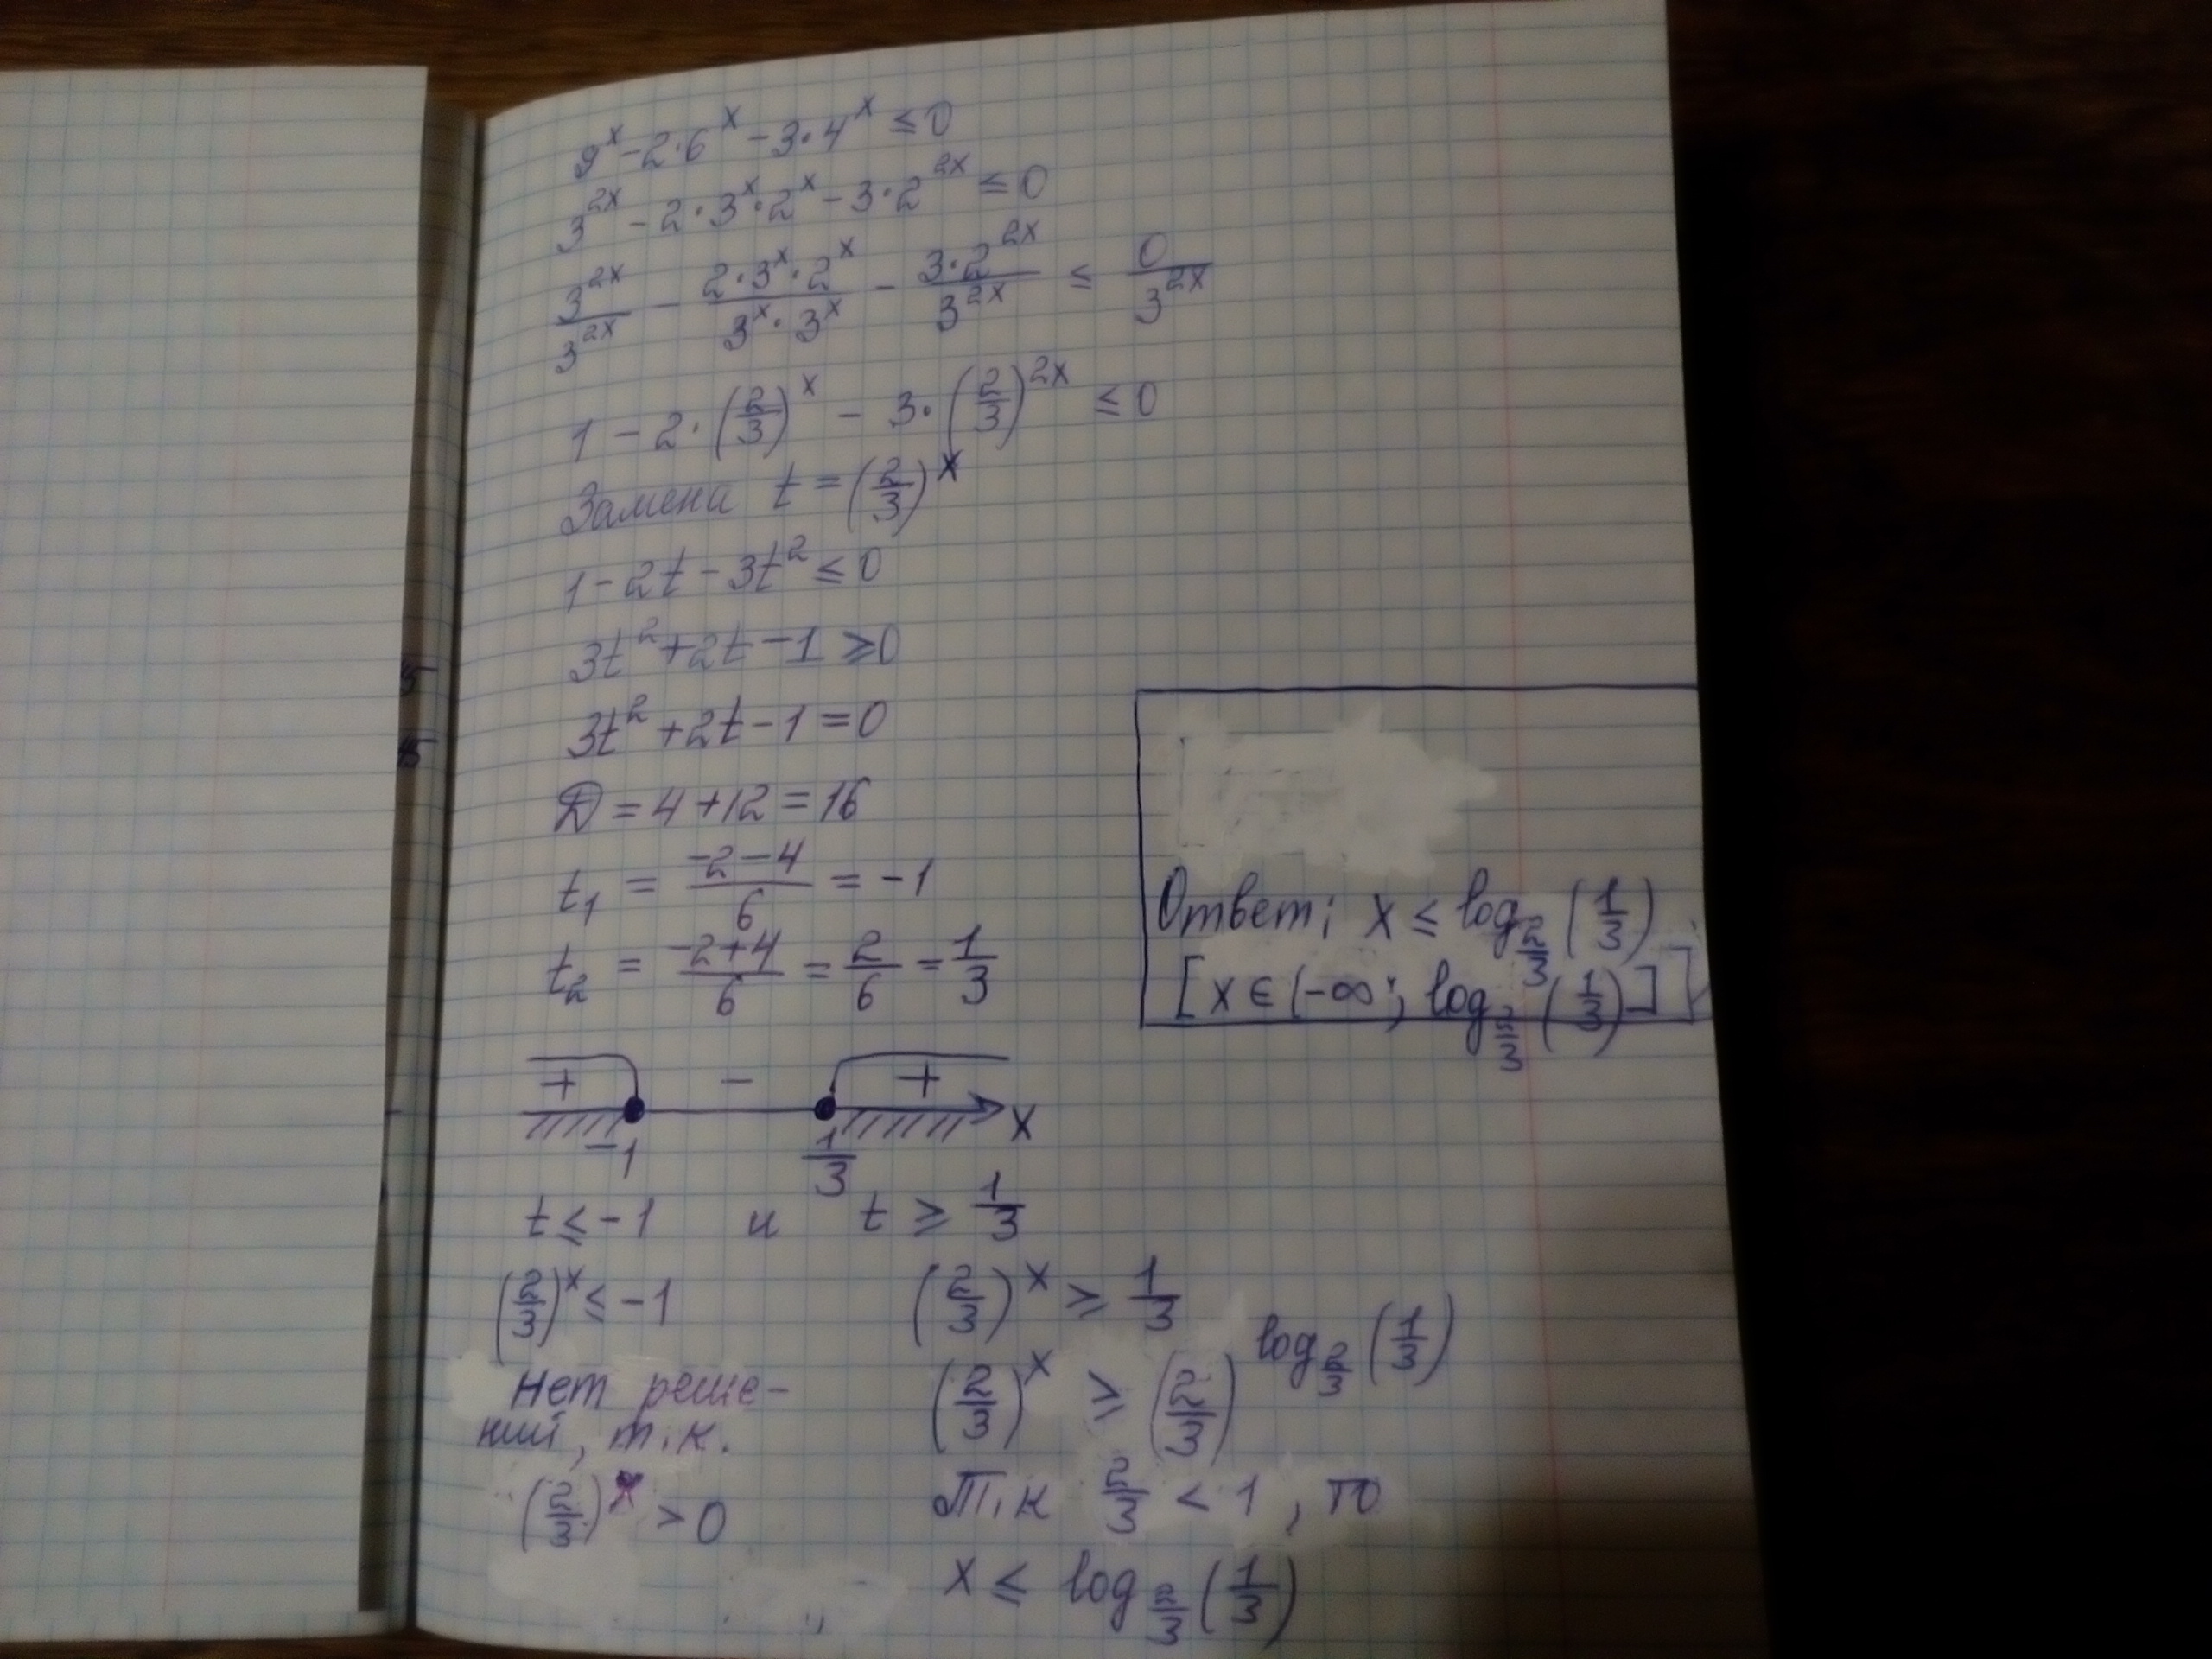 9^x - 2·6^x - 3·4^x ≤ 0
3^{2x} - 2·3^x·2^x - 3·2^{2x} ≤ 0
\frac{3^{2x}}{3^{2x}} - \frac{2·3^x·2^x}{3^x·3^x} - \frac{3·2^{2x}}{3^{2x}} ≤ \frac{0}{3^{2x}}
1 - 2·(\frac{2}{3})^x - 3·(\frac{2}{3})^{2x} ≤ 0
Замена t = (\frac{2}{3})^x
1 - 2t - 3t^2 ≤ 0
3t^2 + 2t - 1 ≥ 0
3t^2 + 2t - 1 = 0
D = 4 + 12 = 16
t_1 = \frac{-2-4}{6} = -1
t_2 = \frac{-2+4}{6} = \frac{2}{6} = \frac{1}{3}
+ - +
-1 \frac{1}{3} x
t ≤ -1 и t ≥ \frac{1}{3}
(\frac{2}{3})^x ≤ -1
Нет реше-
ний, т.к.
(\frac{2}{3})^x > 0
(\frac{2}{3})^x ≥ \frac{1}{3}
(\frac{2}{3})^x ≥ (\frac{2}{3})^{log_{\frac{2}{3}}(\frac{1}{3})}
Т.к \frac{2}{3} < 1, то
x ≤ log_{\frac{2}{3}}(\frac{1}{3})
Ответ: x ≤ log_{\frac{2}{3}}(\frac{1}{3})
[x ∈ (-∞; log_{\frac{2}{3}}(\frac{1}{3})]]